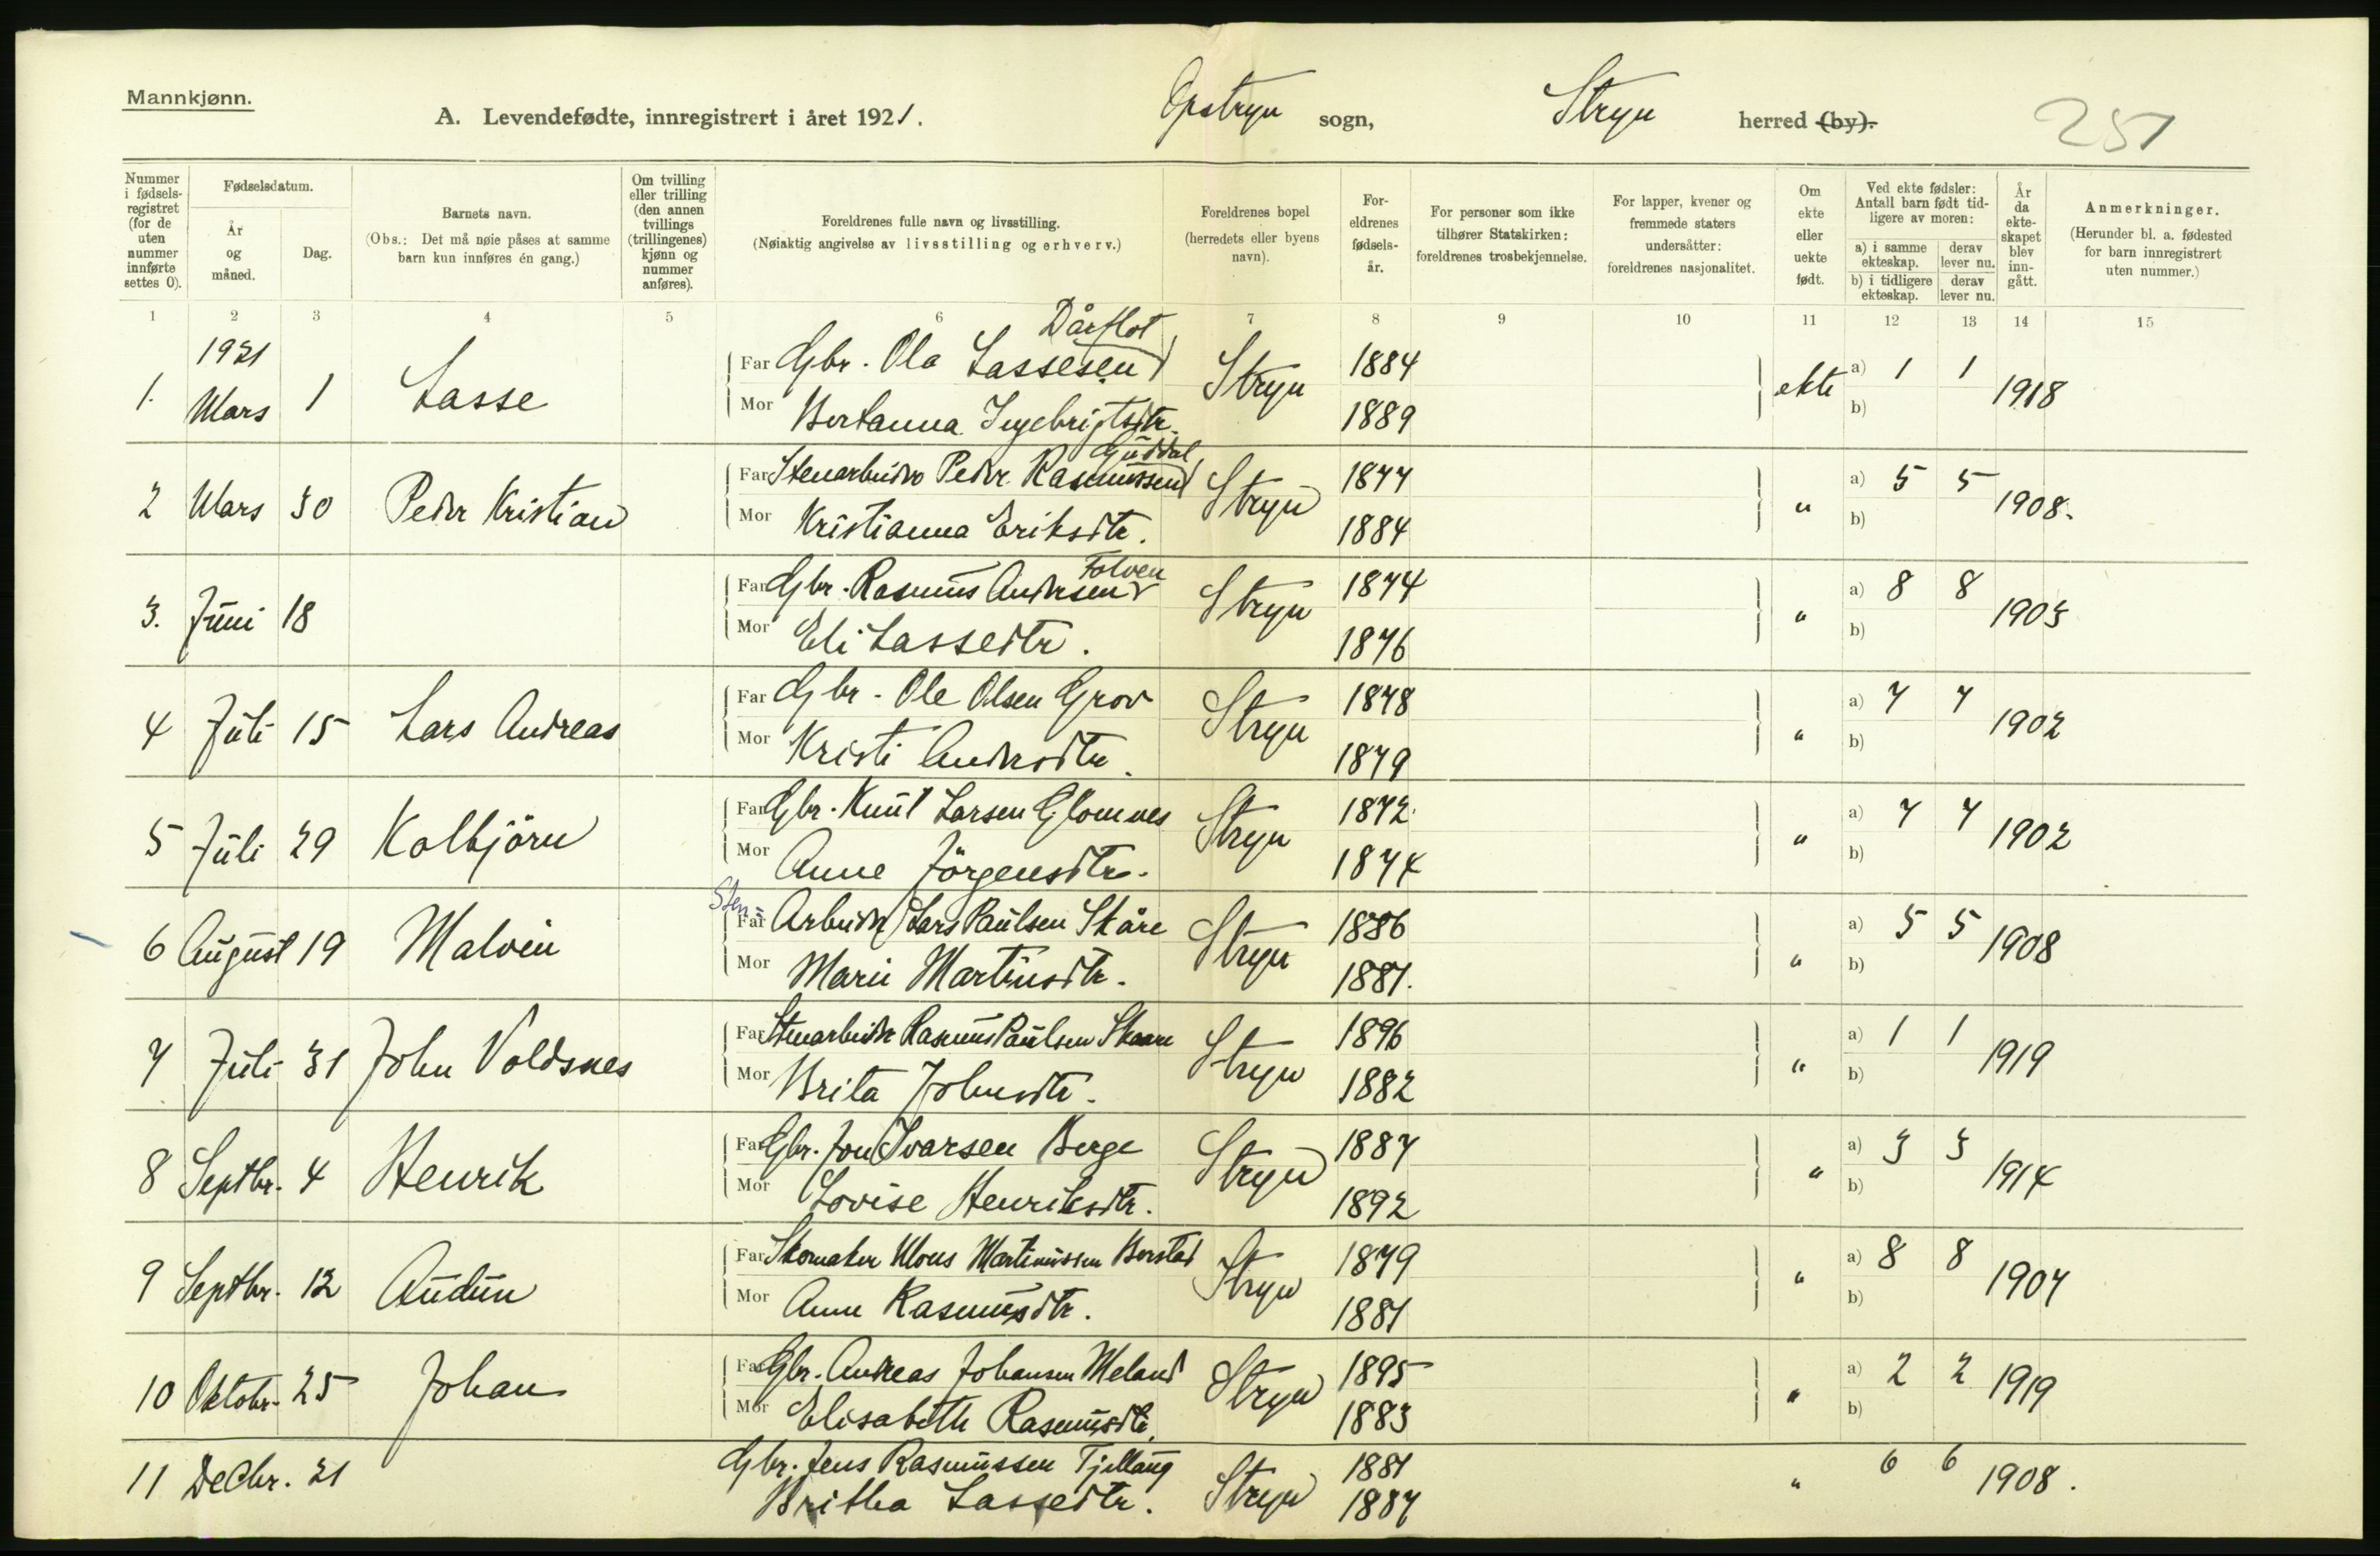 Mannkjønn.
A. Levendefødte, innregistrert i året 1921. Opstryn sogn, Stryn herred (by). 251
Nummer i fødsels-registret (for de uten nummer innførte settes 0).
Fødselsdatum.
År og måned.
Dag.
Barnets navn.
(Obs.: Det må nøie påses at samme barn kun innføres én gang.)
Om tvilling eller trilling (den annen tvillings (trillingenes) kjønn og nummer anføres).
Foreldrenes fulle navn og livsstilling.
(Nøiaktig angivelse av livsstilling og erhverv.)
Foreldrenes bopel (herredets eller byens navn).
For-eldrenes fødsels-år.
For personer som ikke tilhører Statskirken: foreldrenes trosbekjennelse.
For lapper, kvener og fremmede staters undersåtter: foreldrenes nasjonalitet.
Om ekte eller uekte født.
Ved ekte fødsler: Antall barn født tid-ligere av moren:
a) i samme ekteskap. derav lever nu.
b) i tidligere ekteskap. derav lever nu.
År da ekte-skapet blev inn-gått.
Anmerkninger.
(Herunder bl. a. fødested for barn innregistrert uten nummer.)
1 2 3 4 5 6 7 8 9 10 11 12 13 14 15
1921 Dårflot
1. Mars 1 Lasse Far Gbr. Ola Lassesen Stryn 1884 ekte a) 1 1 1918
Mor Bertanna Ingebrigtsdtr. 1889 b)
Guddal
2 Mars 30 Peder Kristian Far Stenarbeider Peder Rasmussen Stryn 1877 " a) 5 5 1908.
Mor Kristianna Eriksdtr. 1884 b)
Folven
3. Juni 18 Far Gbr. Rasmus Andersen Stryn 1874 " a) 8 8 1903
Mor Eli Lassedtr. 1876 b)
4 Juli 15 Lars Andreas Far Gbr. Ole Olsen Grov Stryn 1878 " a) 7 7 1902
Mor Kristi Andersdtr. 1879 b)
5 Juli 29 Kolbjörn Far Gbr. Knut Larsen Glomnes Stryn 1872. " a) 7 7 1902
Mor Anne Jörgensdtr. 1874 b)
6 August 19 Malvin Far Sten-Arbeider Lars Paulsen Skåre Stryn 1886 " a) 5 5 1908
Mor Marie Martinusdtr. 1881. b)
7 Juli 31 John Voldsnes Far Stenarbeider Rasmus Paulsen Skaare Stryn 1896 " a) 1 1 1919
Mor Brita Johnsdtr. 1882 b)
8 Septbr. 4 Henrik Far Gbr. Jon Ivarsen Berge Stryn 1887 " a) 3 3 1914
Mor Lovise Henriksdtr. 1892 b)
9 Septbr. 12 Audun Far Skomaker Mons Martinussen Berstad Stryn 1879 " a) 8 8 1907
Mor Anne Rasmusdtr. 1881 b)
10 Oktobr. 25 Johan Far Gbr. Andreas Johansen Meland Stryn 1895 " a) 2 2 1919
Mor Elisabeth Rasmusdtr. 1883 b)
11 Decbr. 21 Gbr. Jens Rasmussen Tjellaug Stryn 1881 " 6 6 1908.
Britha Lassedtr. 1887